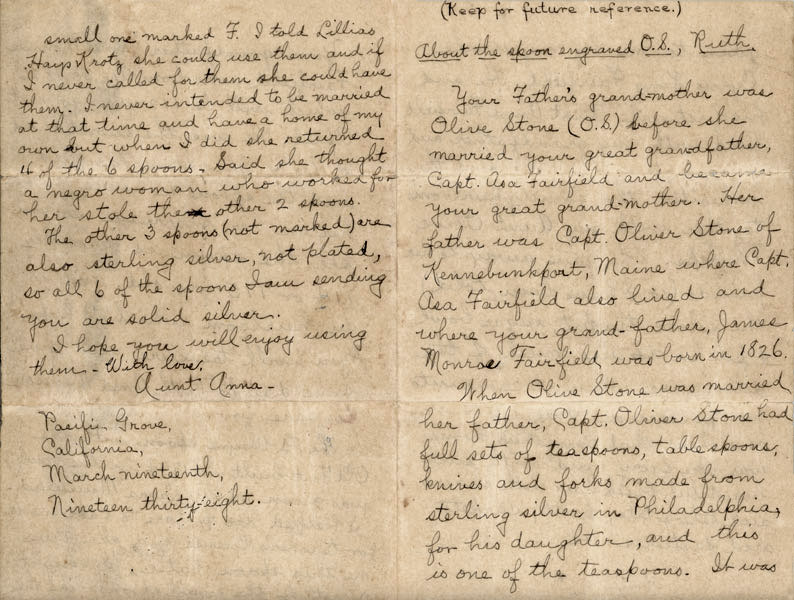 small one marked F. I told Lillias
Hays Krotz she could use them and if
I never called for them she could have
them. I never intended to be married
at that time and have a home of my
own but when I did she returned
4 of the 6 spoons. Said she thought
a negro woman who worked for
her stole the other 2 spoons.
The other 3 spoons (not marked) are
also sterling silver, not plated,
so all 6 of the spoons I am sending
you are solid silver.
I hope you will enjoy using
them - With love.
Aunt Anna -
Pacific Grove,
California,
March nineteenth,
Nineteen thirty-eight.
(Keep for future reference.)
About the spoon engraved O.S., Ruth.
Your Father's grand-mother was
Olive Stone (O.S.) before she
married your great grandfather,
Capt. Asa Fairfield and became
your great grand-mother. Her
father was Capt. Oliver Stone of
Kennebunkport, Maine where Capt.
Asa Fairfield also lived and
where your grand-father, James
Monroe Fairfield was born in 1826.
When Olive Stone was married
her father, Capt. Oliver Stone had
full sets of teaspoons, table spoons,
knives and forks made from
sterling silver in Philadelphia,
for his daughter, and this
is one of the teaspoons. It was